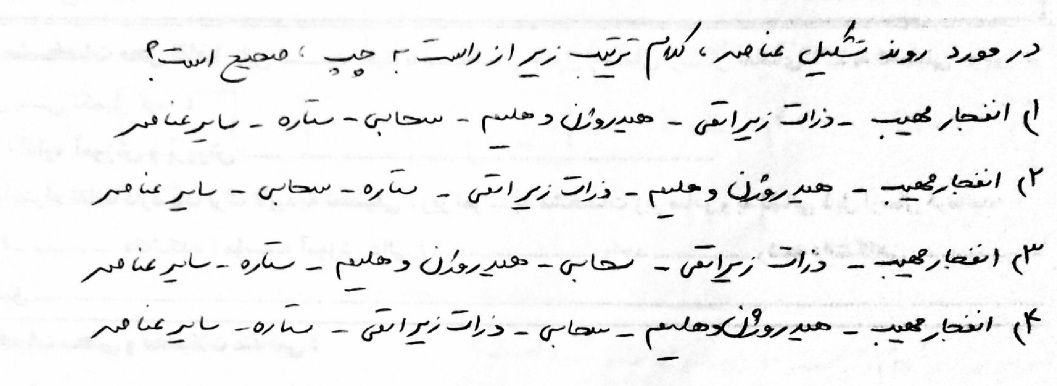 در مورد روند تشکیل عناصر، کدام ترتیب زیر از راست به چپ، صحیح است؟
۱) انفجار مهیب - ذرات زیراتمی - هیدروژن و هلیم - سحابی - ستاره - سایر عناصر
۲) انفجار مهیب - هیدروژن و هلیم - ذرات زیراتمی - ستاره - سحابی - سایر عناصر
۳) انفجار مهیب - ذرات زیراتمی - سحابی - هیدروژن و هلیم - ستاره - سایر عناصر
۴) انفجار مهیب - هیدروژن و هلیم - سحابی - ذرات زیراتمی - ستاره - سایر عناصر